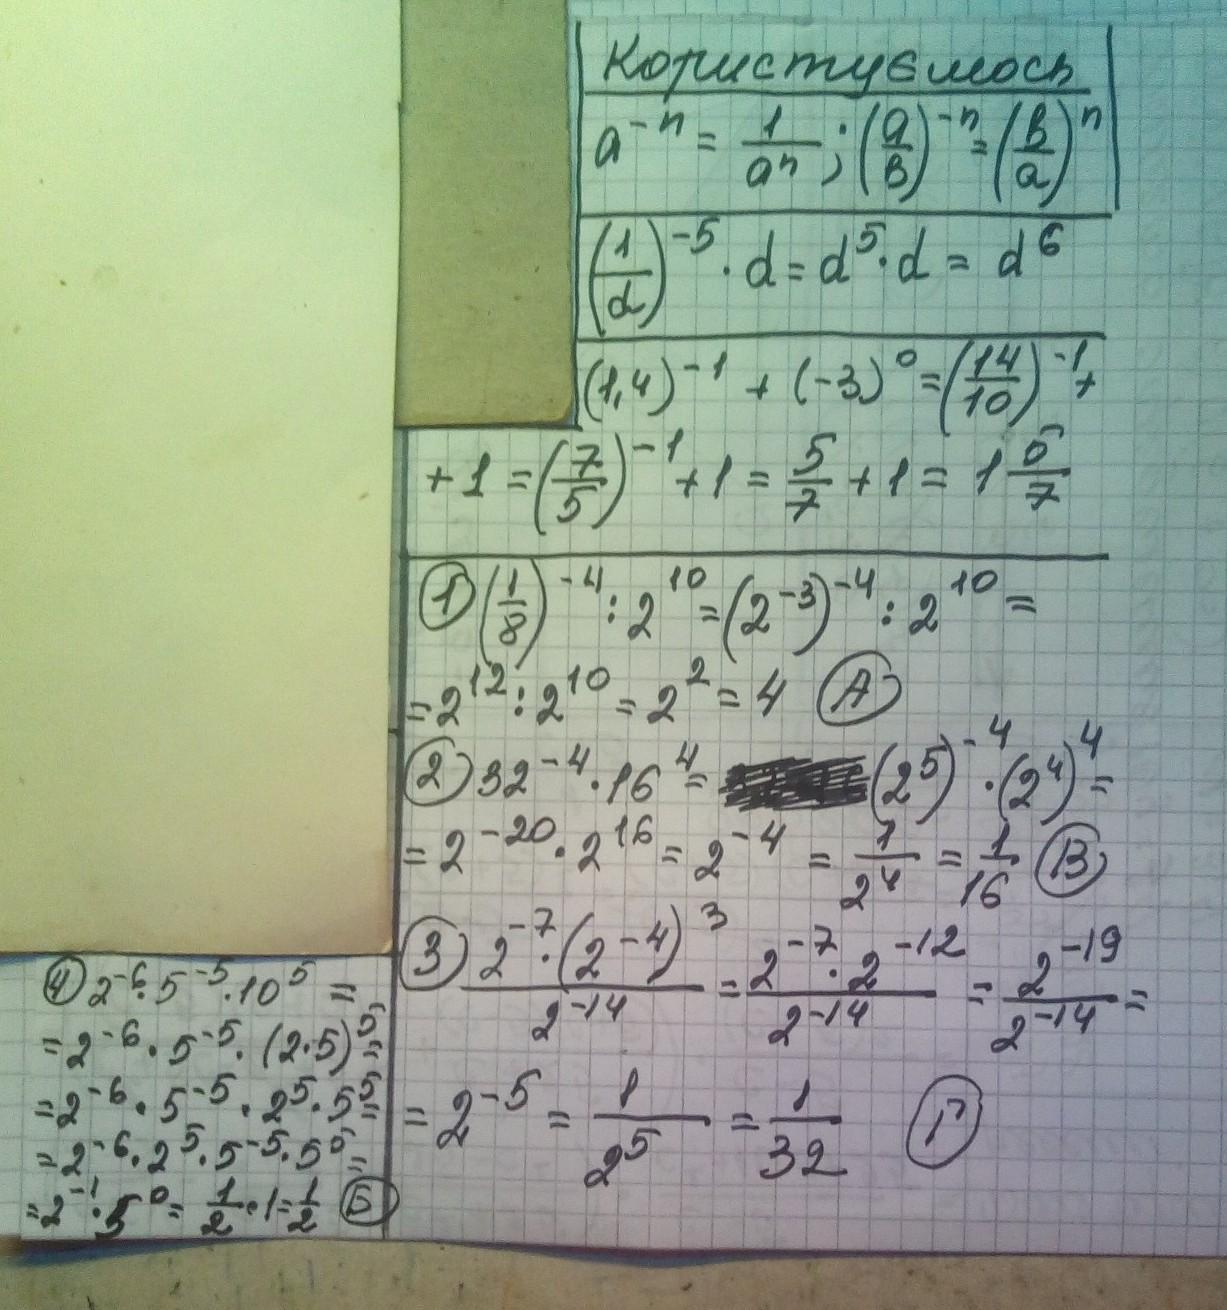 Користуємось
a^{-n} = \frac{1}{a^n}; \left(\frac{a}{в}\right)^{-n} = \left(\frac{в}{a}\right)^n
\left(\frac{1}{d}\right)^{-5} · d = d^5 · d = d^6
(1,4)^{-1} + (-3)^0 = \left(\frac{14}{10}\right)^{-1} +
+ 1 = \left(\frac{7}{5}\right)^{-1} + 1 = \frac{5}{7} + 1 = 1\frac{5}{7}
① \left(\frac{1}{8}\right)^{-4} : 2^{10} = (2^{-3})^{-4} : 2^{10} =
= 2^{12} : 2^{10} = 2^2 = 4 Ⓐ
② 32^{-4} · 16^4 = (2^5)^{-4} · (2^4)^4 =
= 2^{-20} · 2^{16} = 2^{-4} = \frac{1}{2^4} = \frac{1}{16} (В)
③ \frac{2^{-7} · (2^{-4})^3}{2^{-14}} = \frac{2^{-7} · 2^{-12}}{2^{-14}} = \frac{2^{-19}}{2^{-14}} =
= 2^{-5} = \frac{1}{2^5} = \frac{1}{32} (Г)
④ 2^{-6} · 5^{-5} · 10^5 =
= 2^{-6} · 5^{-5} · (2·5)^5 =
= 2^{-6} · 5^{-5} · 2^5 · 5^5 =
= 2^{-6} · 2^5 · 5^{-5} · 5^5 =
= 2^{-1} · 5^0 = \frac{1}{2} · 1 = \frac{1}{2} (Б)